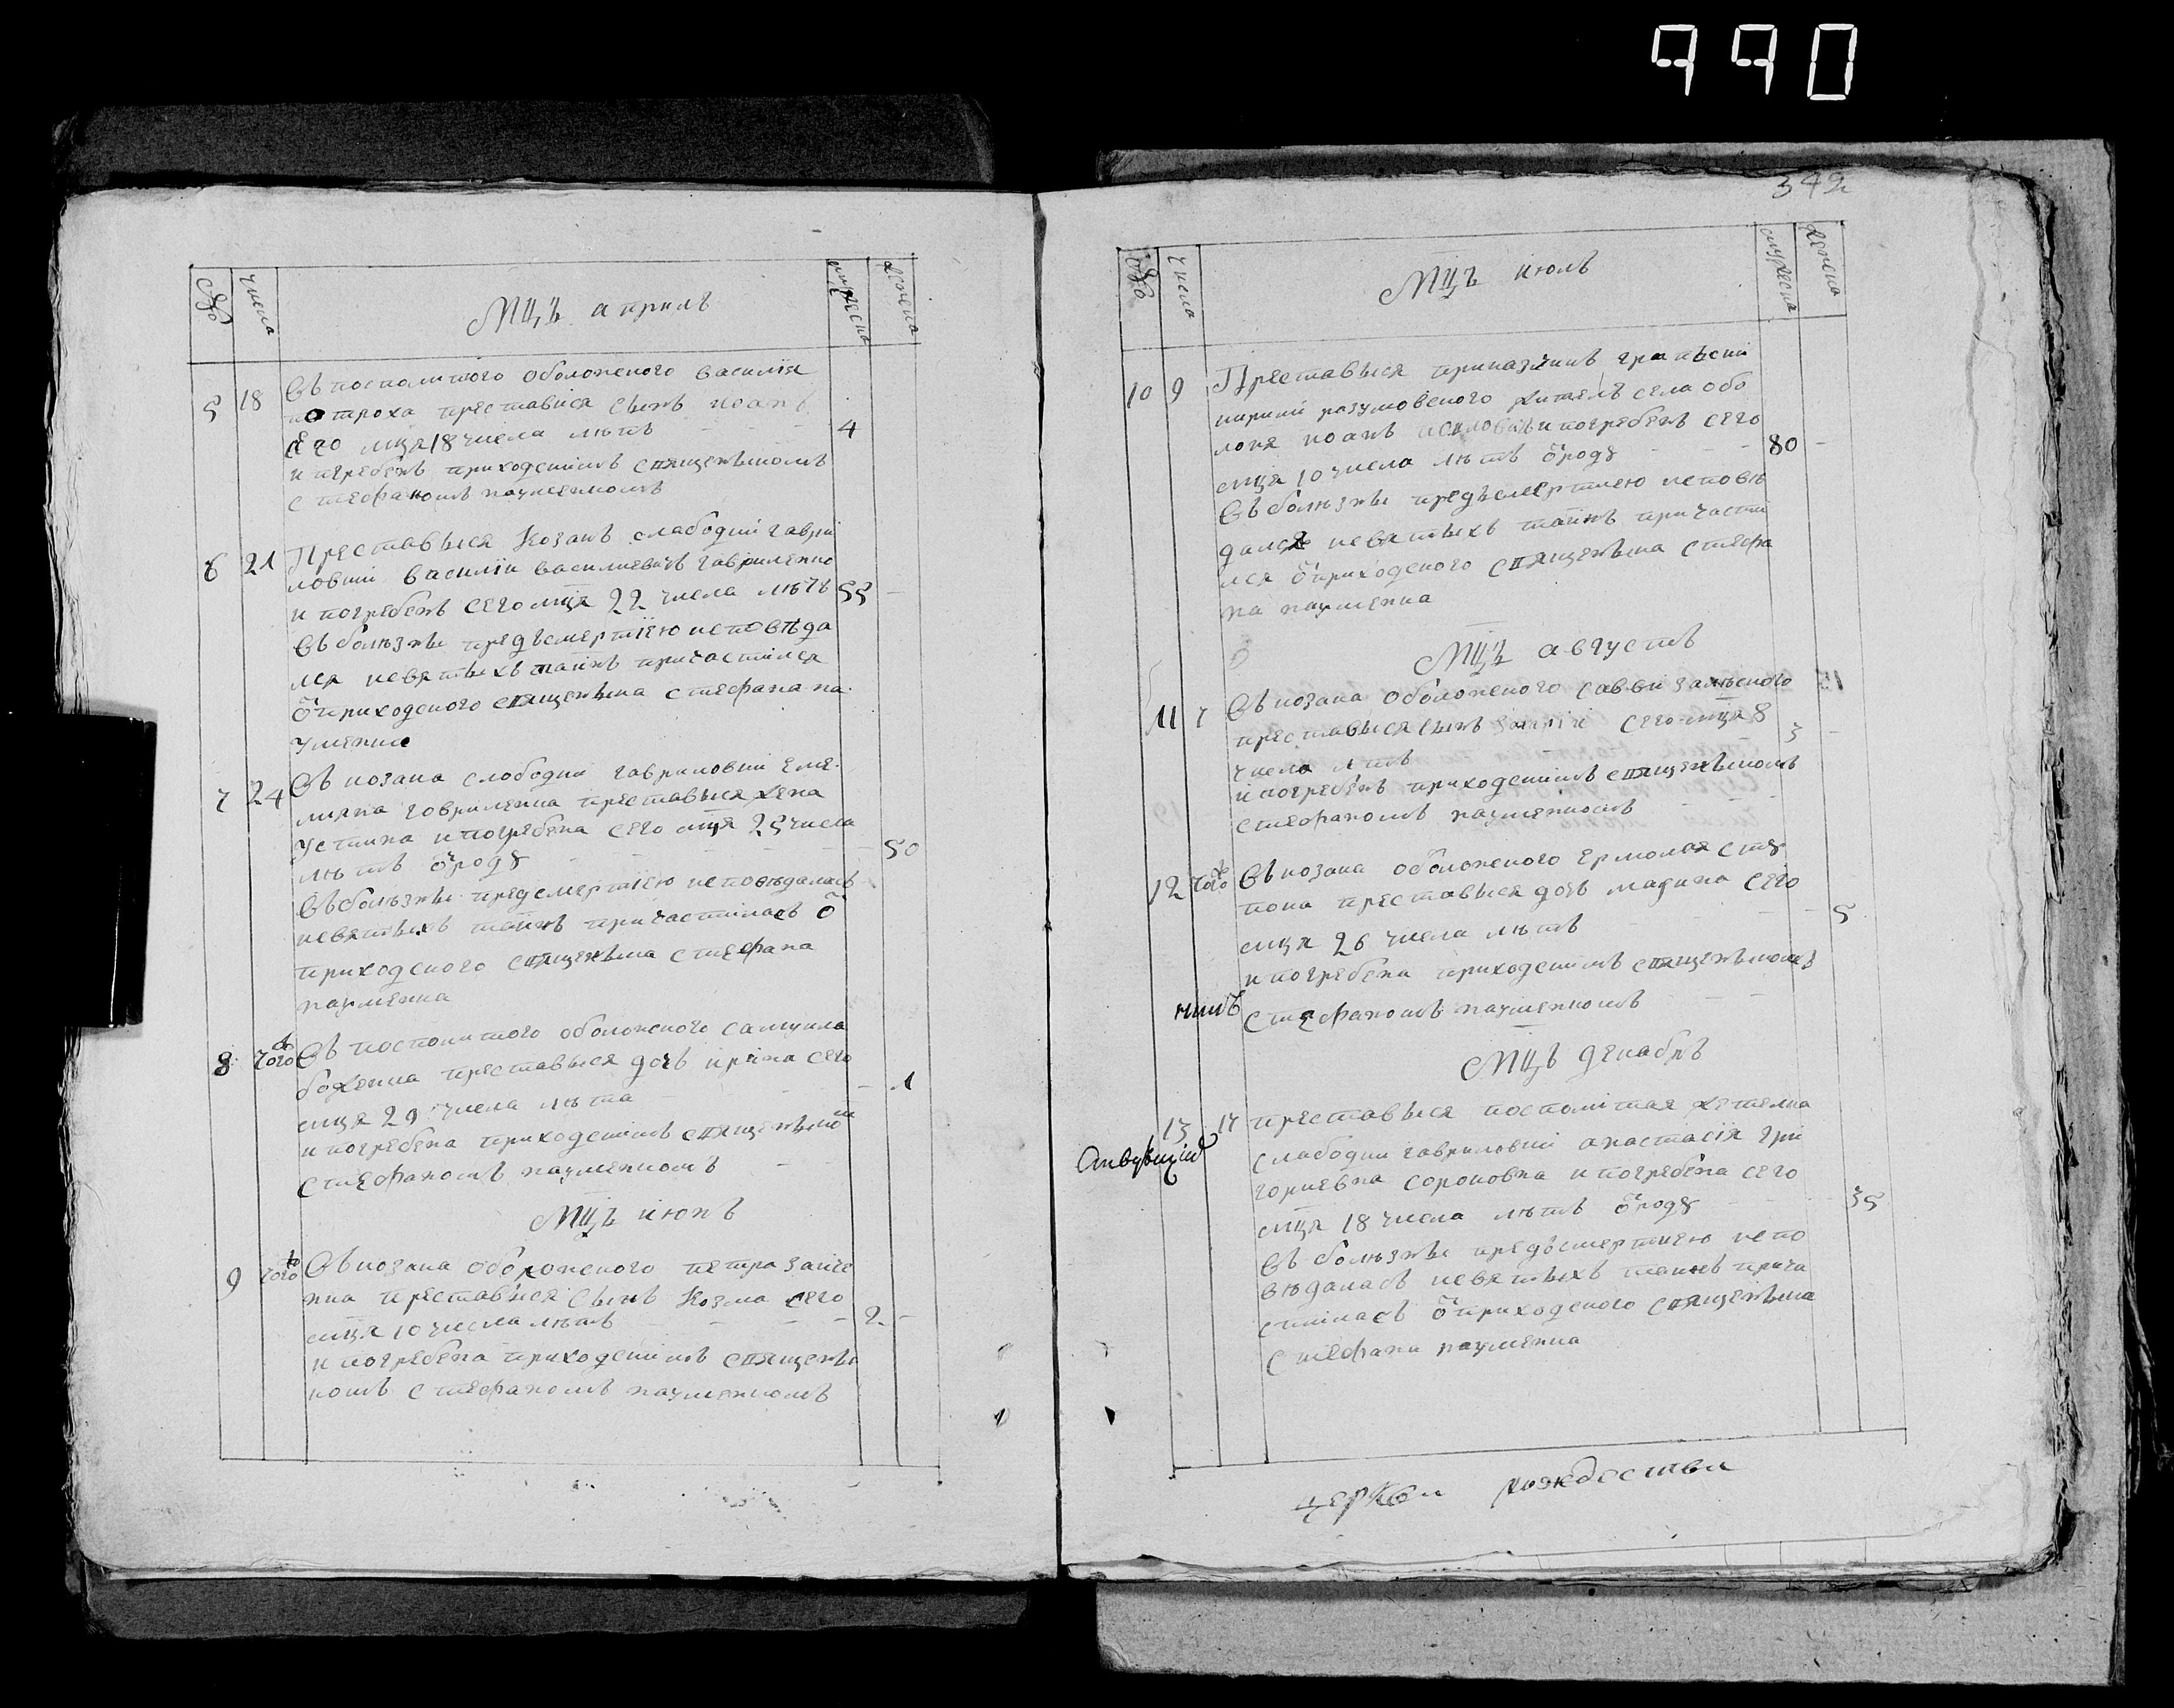 990
№ числа Мцъ априль мужеска женска
5 18 Въ посполитого оболонского василія
потроха преставися сынъ иоанъ
Его мця 18 числа лѣтъ - - - 4
и погребенъ приходскимъ священикомъ
стефаномъ наументомъ
6 21 Преставыся Козакъ слабодки гаври
ловки василіи василиевичъ гавриленко
и погребенъ сего мця 22 числа лѣтъ 55 -
въ болѣзны предъ смертіею исповѣда
лся исвятыхъ таинъ причастился
ѿ приходского священыка стефана на
уменка
7 24 Въ козака слободки гавриловки еме
лияна говриленка преставыся жена
устина и погребена сего мця 25 числа
лѣтъ ѿ роду - - - 50
въ болѣзны предсмертіею исповѣдалась
исвятыхъ таинъ причастилась ѿ
приходского священыка стефана
науменка
8 тогож Въ посполитого оболонского самуила
боженка преставыся дочь ирина сего
мця 29 числа лѣта - - 1
и погребена приходскимъ священыком
стефаномъ науменкомъ - -
Мцъ июнь
9 тогож Въ козака оболонского петра заиче
нка преставыся сынъ Козма сего
мця 10 числа лѣтъ - - - 2 -
и погребена приходскимъ священы
комъ стефаномъ науменкомъ
342
№ числа Мцъ июль мужеска женска
10 9 Преставыся приказчикъ графъски
кирили разумовского житель села обо
лоня иоанъ и погребенъ сего
мця 10 числа лѣтъ ѿ роду - - 80 -
въ болѣзны предъсмертиею исповѣ
дался исвятыхъ таинъ причасти
лся ѿ приходского священыка стефа
на науменка
Мцъ августъ
11 7 Въ козака оболонского саввы
преставыся сынъ сего мця 8
числа лѣтъ 3 -
и погребенъ приходскимъ священыкомъ
стефаномъ науменкомъ - - -
12 тогож Въ козака оболонского ермолая сту
пока преставыся дочь марина сего
мця 26 числа лѣтъ - - - 5
и погребена приходскимъ священыкомъ
стефаномъ науменкомъ - -
Мцъ декабрь
13 17 преставыся посполитая жителка
слабодки гавриловки анастасія гри
гориевна сороковна и погребена сего
мця 18 числа лѣтъ ѿ роду - - 35
въ болѣзны предъсмертиею испо
вѣдалась исвятыхъ таинъ прича
стилась ѿ приходского священыка
стефана науменка
церкви рождества